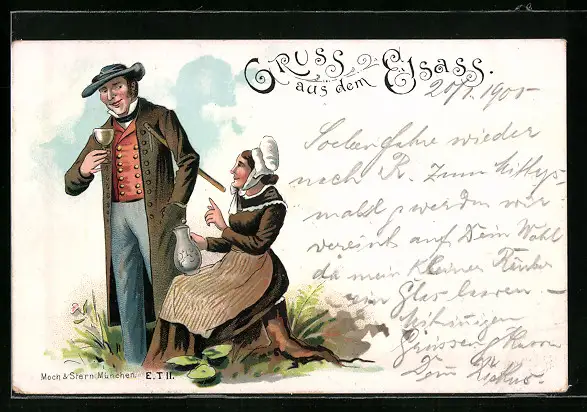 Gruss
aus dem Elsass.
20/1. 1900
Soeben fahre wieder
nach R. Zum Mittags-
mahl werden wir
vereint auf Dein Wohl
da mein kleiner
ein Glas leeren –
Grüssen
Dein
Moch & Stern München. E.T II.